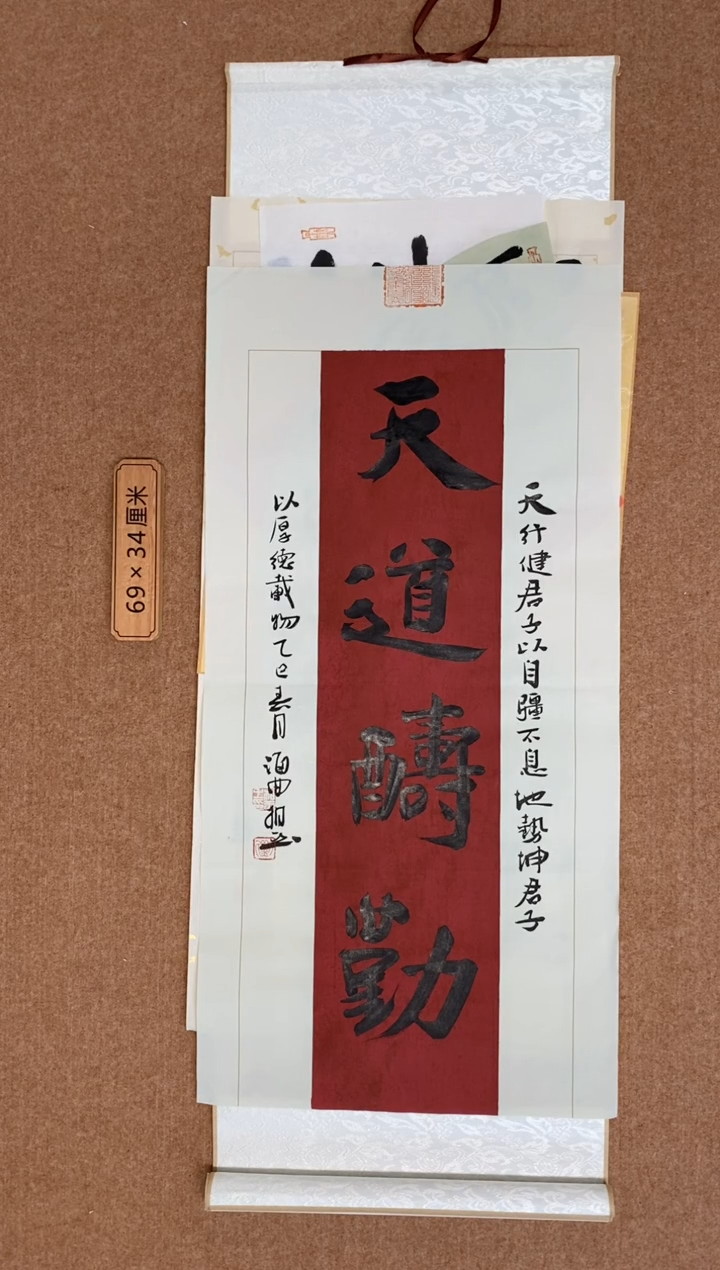 天道醻勤
天行健君子以自疆不息地勢坤君子
以厚德載物乙巳春月海曲
69×34厘米